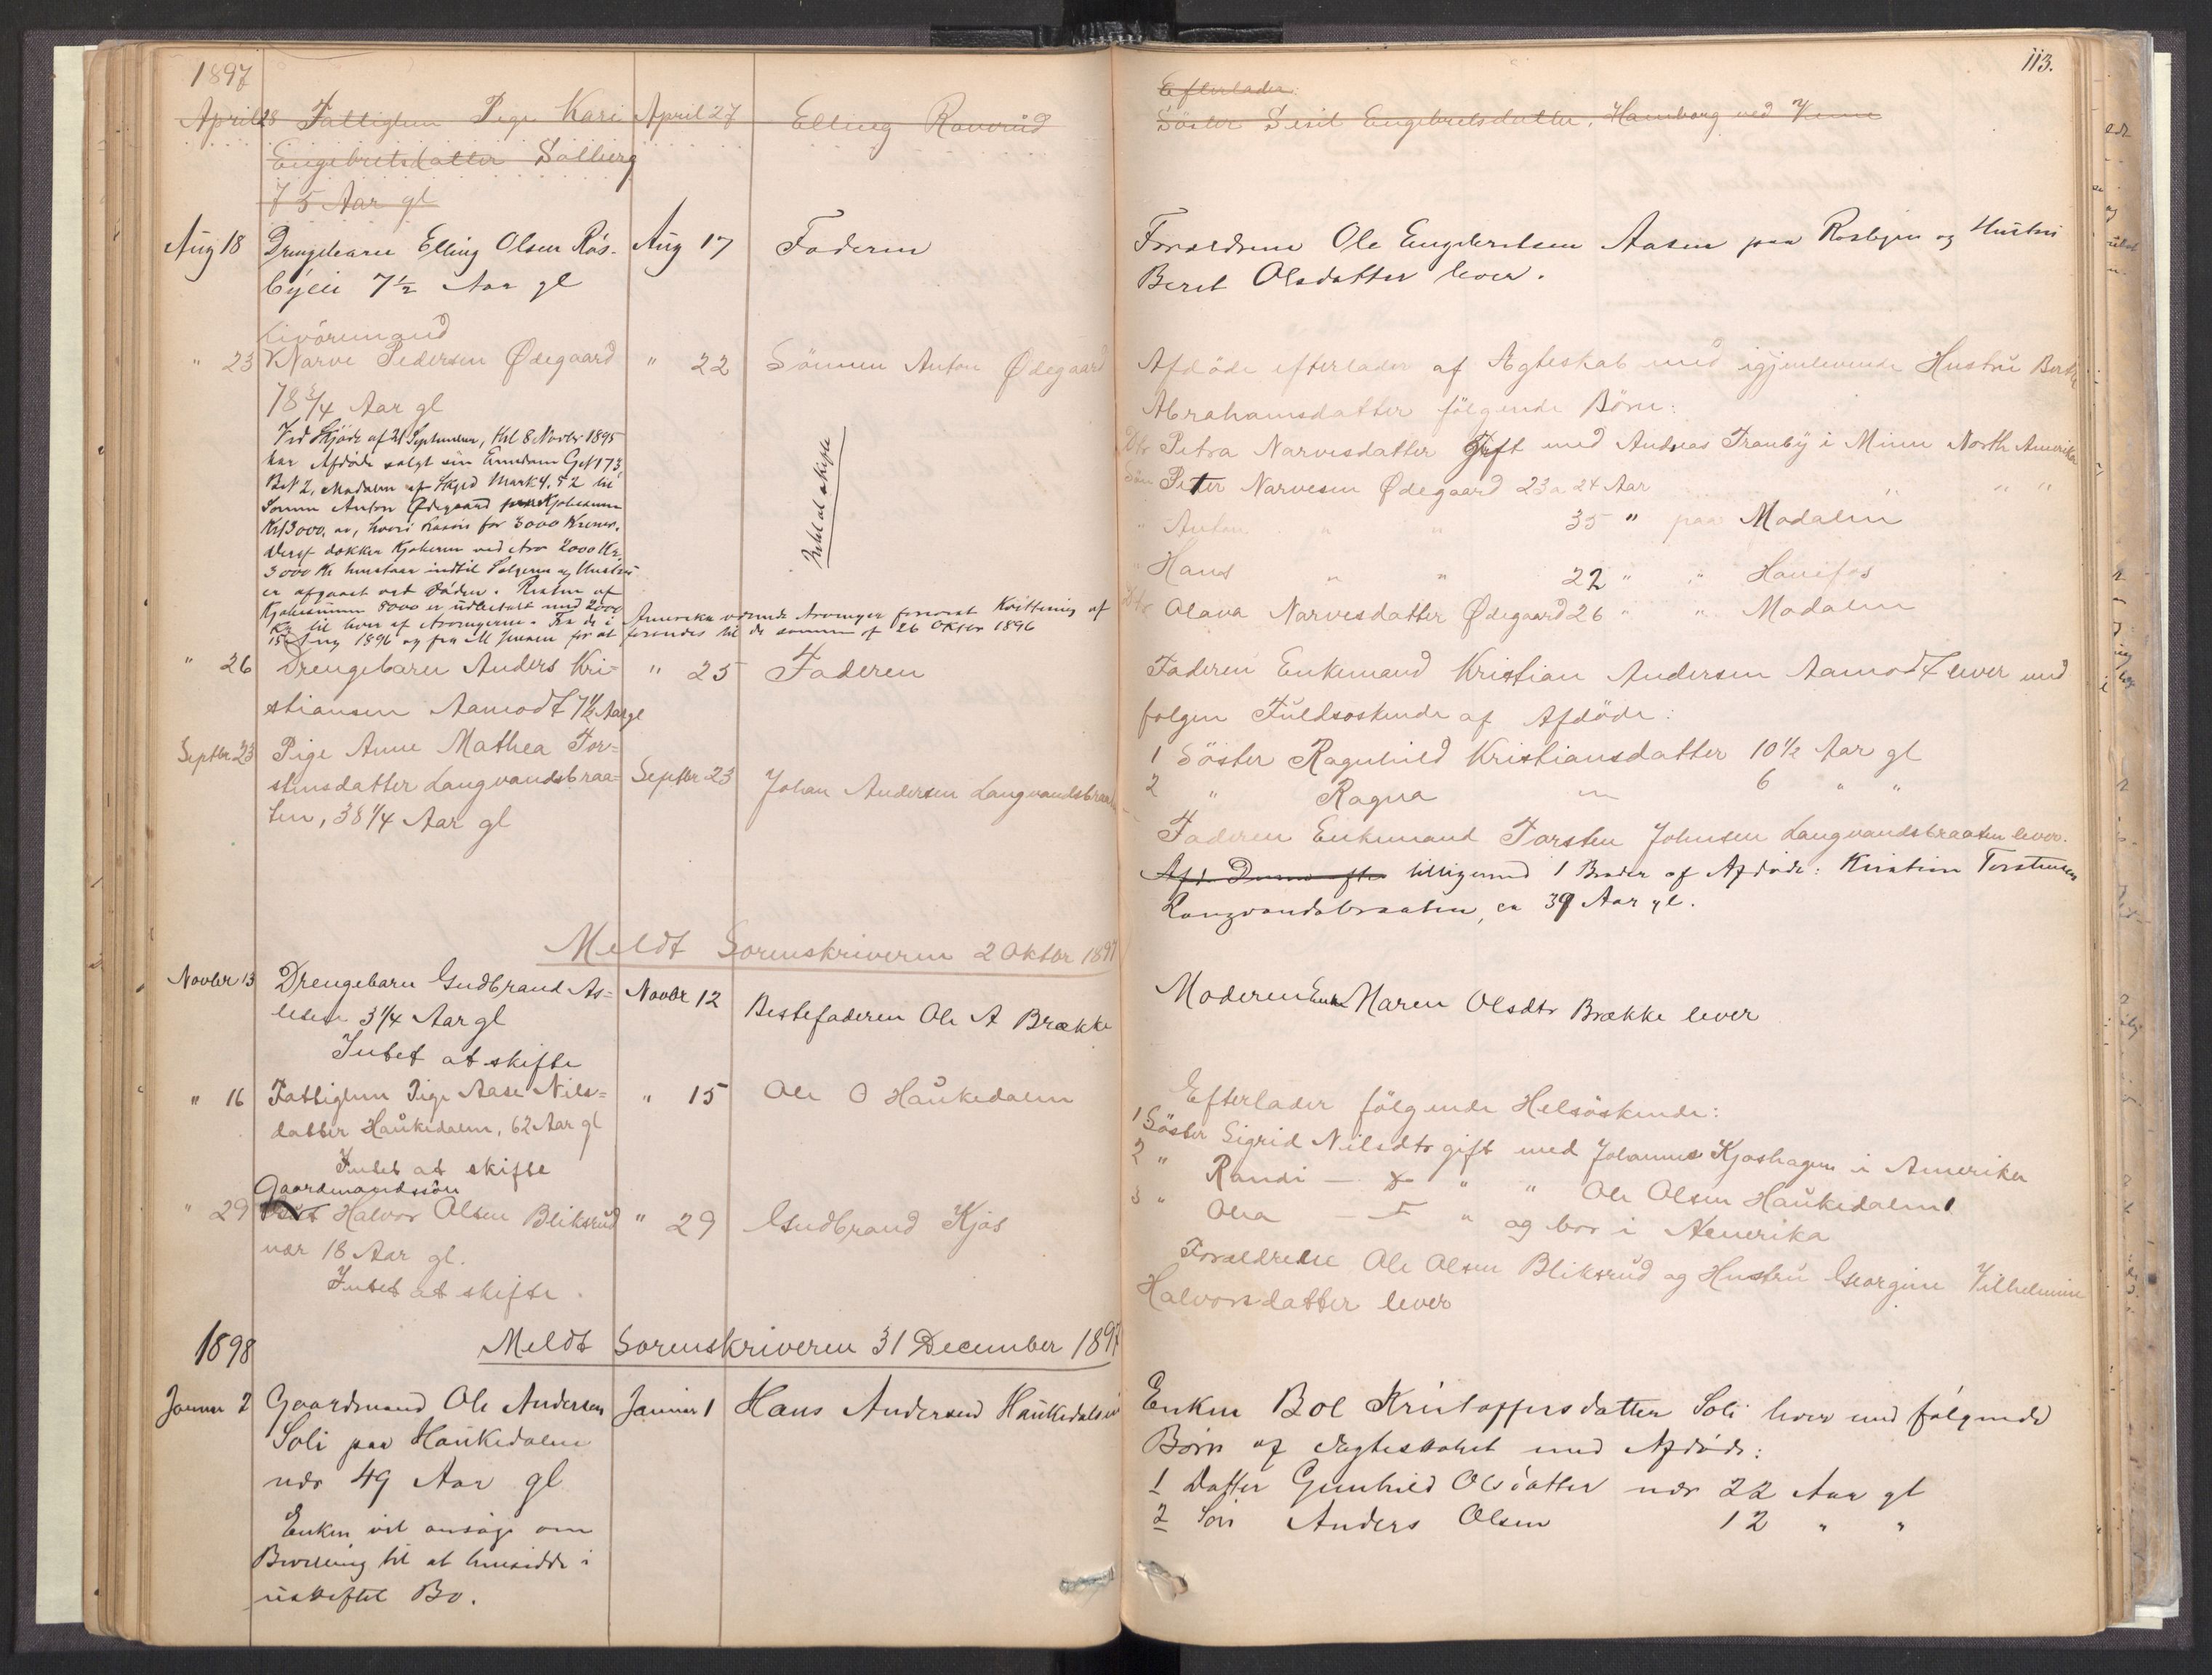 1897
April 28 Fattiglem Pige Kari April 27 Elling Raverud
Engebretsdatter Solberg
75 Aar gl
Aug 18 Drengebarn Elling Olsen Ros- Aug 17 Faderen
byen 7½ Aar gl
Livöremand
" 23 Narve Pedersen Ødegaard " 22 Sönnen Anton Ødegaard
78¾ Aar gl
Ved Skjöde af 21 September, thl 8 Novbr 1895
har Afdöde solgt sin Eiendom GrN 173,
BrN 2, Modalen af Skyld Mark 4,52 til
Sönnen Anton Ødegaard Kjöbesum
Kr 13000, hvori Lösöre for 3000 Kroner.
dækker Kjöberen ved Aar 2000 Kr.
3000 Kr henstaar indtil Sælgeren og Hustru
er afgaaet ved Döden. Resten af
Kjöbesummen 8000 er udbetalt med 2000
Kr til hver af Arvingerne. Fra de i Amerika værende Arvinger foreviist Kvittering af
15 Aug 1896 og fra M Jensen for at forsendes til de samme af 26 Oktbr 1896
Intet at skifte
" 26 Drengebarn Anders Kri= " 25 Faderen
stiansen Aamodt 7½ Aar gl
Septbr 23 Pige Anne Mathea Tor=
stensdatter Langvandsbraa= Septbr 23 Johan Andersen Langvandsbraaten
ten, 38¼ Aar gl
Meldt Sorenskriveren 2 Oktbr 1897
Novbr 13 Drengebarn Gudbrand As= Novbr 12 Bestefaderen Ole A Brække
lesen 3¼ Aar gl
Intet at skifte
" 16 Fattiglem Pige Aase Nils= " 15 Ole O Haukedalen
datter Haukedalen, 62 Aar gl
Intet at skifte
Gaardmandssön
" 29 Halvor Olsen Bliksrud " 29 Gudbrand Kjös
nær 18 Aar gl.
Intet at skifte.
1898 Meldt Sorenskriveren 31 December 1897
Januar 2 Gaardmand Ole Andersen Januar 1 Hans Andersen Haukedalen
Soli paa Haukedalen
nær 49 Aar gl
Enken vil ansöge om
Bevilling til at hensidde i
uskiftet Bo.
113.
Efterlader:
Söster Sisil Engebretsdatter, Hamborg ved Veme
Forældrene Ole Engebretsen Aasen paa Rosbyen og Hustru
Berit Olsdatter lever.
Afdöde efterlader af Ægteskab med igjenlevende Hustru Berthe
Abrahamsdatter fölgende Börn:
Dtr Petra Narvesdatter gift med Andreas Tranby i Minn North Amerika
Sön Peter Narvesen Ødegaard 23 a 24 Aar " " "
" Anton " " 35 " paa Modalen
" Hans " " 22 " " Hönefos
Dtr Olava Narvesdatter Ødegaard 26 " " Modalen
Faderen Enkemand Kristian Andersen Aamodt lever med
fölgen Fuldsöskende af Afdöde:
1 Söster Ragnhild Kristiansdatter 10½ Aar gl
2 " Ragna " 6 " "
Faderen Enkemand Torsten Johnsen Langvandsbraaten lever.
tilligemed 1 Broder af Afdöde: Kristian Torstensen
Langvandsbraaten, ca 39 Aar gl.
Moderen Enke Maren Olsdtr Brække lever
Efterlader fölgende Helsöskende:
1 Söster Sigrid Nilsdtr gift med Johannes Kjoshagen i Amerika
2 " Randi — " " Ole Olsen Haukedalen
3 " Olea — " og bor i Amerika
Forældrene Ole Olsen Bliksrud og Hustru Georgine Vilhelmine
Halvorsdatter lever
Enken Bol Kristoffersdatter Soli lever med fölgende
Börn af Ægteskabet med Afdöde:
1 Datter Gunhild Olsdatter nær 22 Aar gl
2 Sön Anders Olsen 12 " "